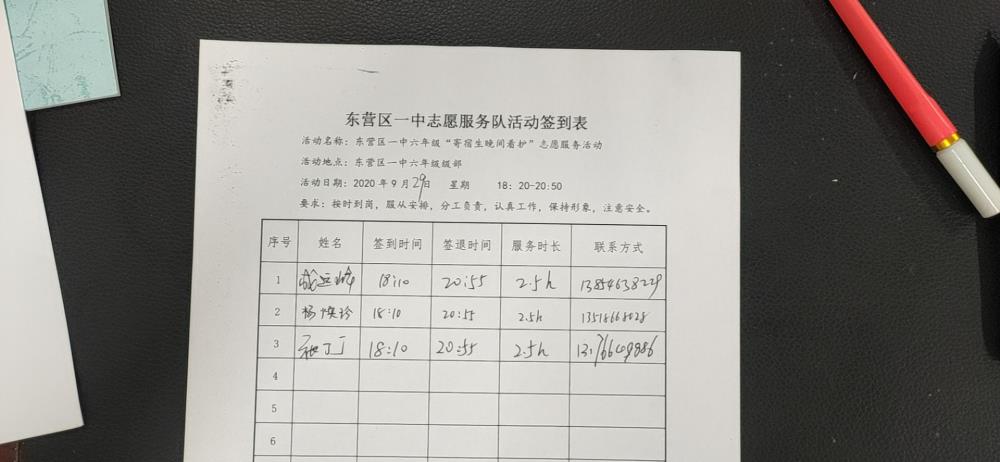 东营区一中志愿服务队活动签到表
活动名称：东营区一中六年级“寄宿生晚间看护”志愿服务活动
活动地点：东营区一中六年级级部
活动日期：2020 年 9 月 29日 星期 18：20-20:50
要求：按时到岗，服从安排，分工负责，认真工作，保持形象，注意安全。
序号 姓名 签到时间 签退时间 服务时长 联系方式
1 18:10 20:55 2.5h 13854638229
2 杨焕珍 18:10 20:55 2.5h 13518668028
3 丁丁 18:10 20:55 2.5h
4
5
6